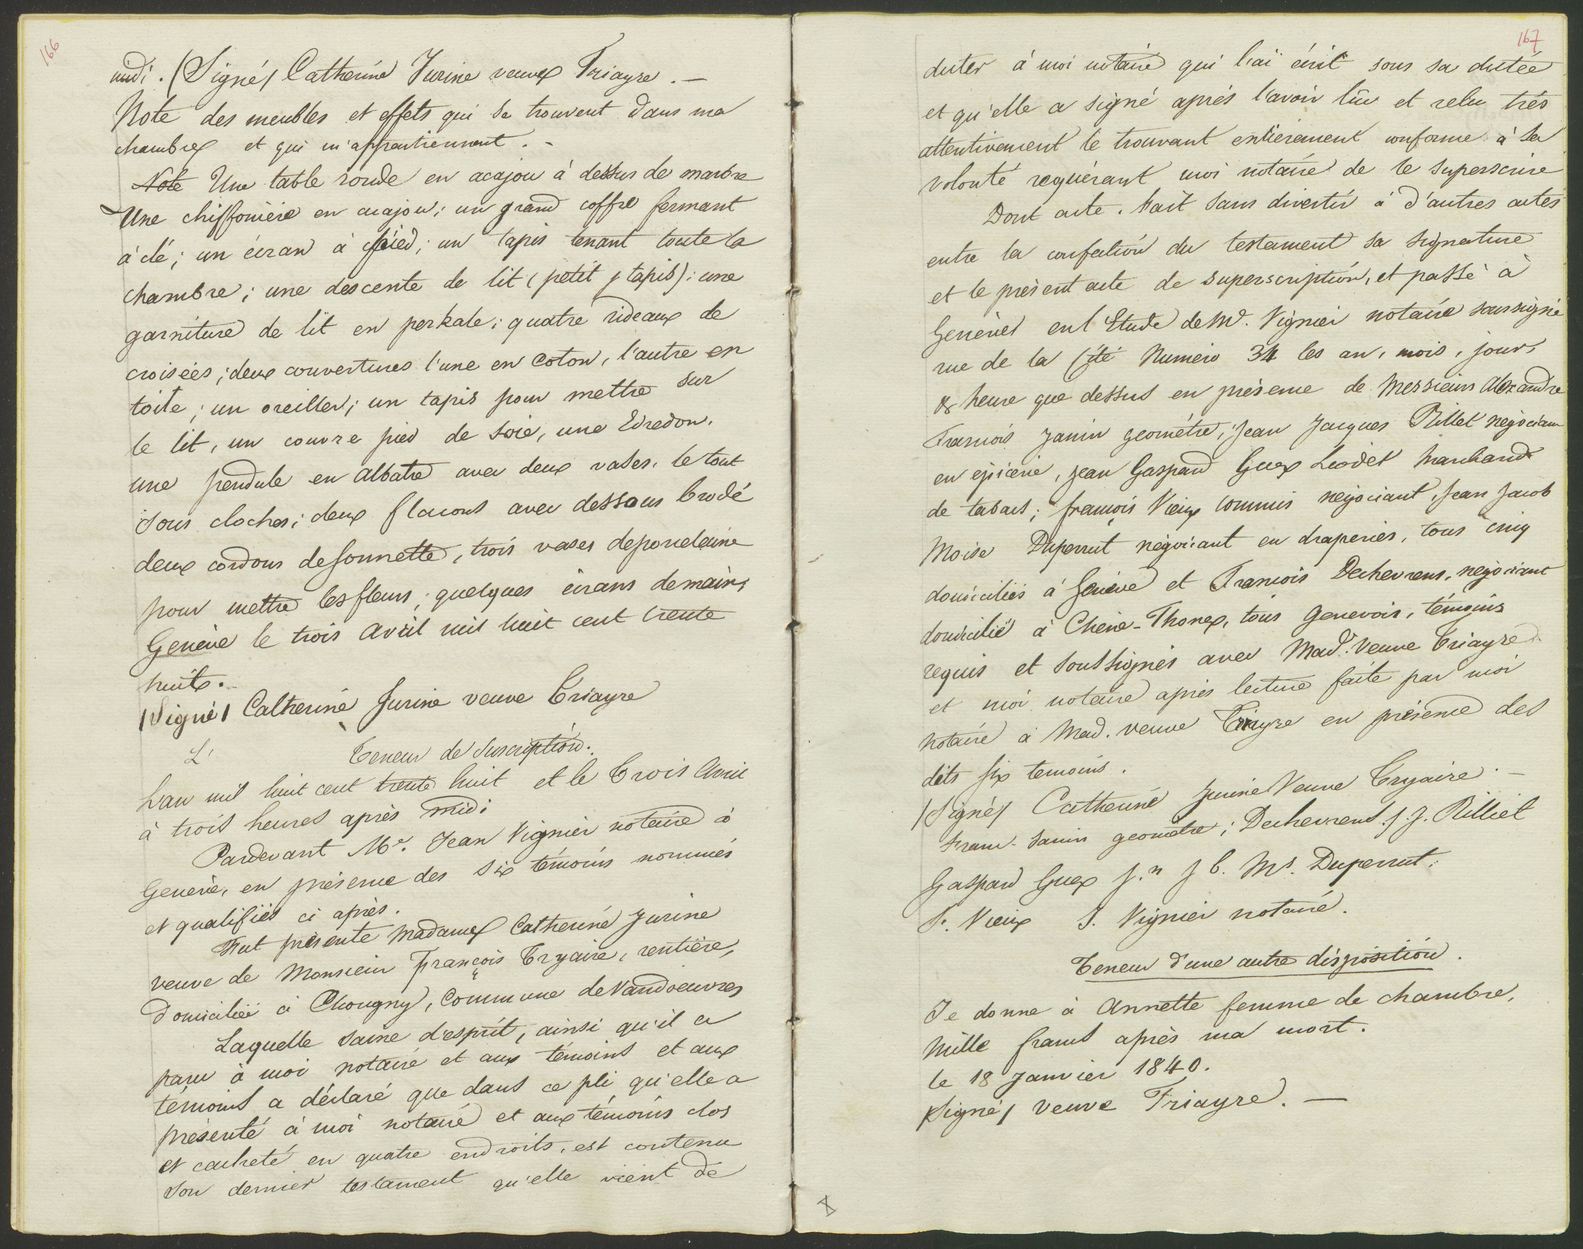 166
midi. (Signé) Catherine Jurine veuve Triayre. —
Note des meubles et effets qui se trouvent dans ma
chambre et qui m'appartiennent. -
Note Une table ronde en acajou à dessus de marbre
Une chiffonière en acajou; un grand coffre fermant
à clé; un écran à pied; un tapis tenant toute la
chambre; une descente de lit (petit tapis); une
garniture de lit en perkale; quatre rideaux de
croisées; deux couvertures l'une en coton, l'autre en
toile; un oreiller; un tapis pour mettre sur
le lit, un couvre pied de soie, une Edredon.
une pendule en albatre avec deux vases, le tout
sous cloches; deux flacons avec dessous brodé
deux cordons de sonnette, trois vases de porcelaine
pour mettre les fleurs; quelques écrans de mains,
Genève le trois avril mil huit cent trente
huit.
(Signé) Catherine Jurine veuve Triayre
L' Teneur de Suscription.
L'an mil huit cent trente huit et le Trois Avril
à trois heures après midi
Pardevant Mr. Jean Vignier notaire à
Genève, en présence des six témoins nommés
et qualifiés ci après.
Fut présente Madame Catherine Jurine
veuve de Monsieur François Tryaire, rentière,
domiciliée à Chougny, Commune de Vandoeuvres
Laquelle saine d'esprit, ainsi qu'il a
paru à moi notaire et aux témoins et aux
témoins a déclaré que dans ce pli qu'elle a
présenté à moi notaire et aux témoins clos
et cacheté en quatre endroits, est contenu
son dernier testament qu'elle vient de
167
dicter à moi notaire qui l'ai écrit sous sa dictée
et qu'elle a signé après l'avoir lûe et relu très
attentivement le trouvant entièrement conforme à sa
volonté requérant moi notaire de le superscrire
Dont acte. Fait sans divertir à d'autres actes
entre la confection du testament sa signature
et le présent acte de superscription, et passé à
Genève en l'Etude de Mr. Vignier notaire soussigné
rue de la Cité Numéro 34 les an, mois, jour,
& heure que dessus en présence de Messieurs Alexandre
François Janin geométre, Jean Jacques Rillet négociant
en épicerie, Jean Gaspard Guex Leodet Marchand
de tabacs; françois Vieux commis négociant, Jean Jacob
Moise Duperrut négociant en draperies, tous cinq
domiciliés à Genève et François Dechevrens, négociant
domicilié à Chêne-Thonex, tous genevois, témoins
requis et soussignés avec Made. veuve Triayre
et moi notaire après lecture faite par moi
notaire à Mad. veuve Triayre en présence des
dits six temoins.
(Signé) Catherine Jurine Veuve Tryaire. —
Franc. Janin geometre; Dechevrens, J. J. Rilliet
Gaspard Guex J.n J b. Ms. Duperrut.
F. Vieux J. Vignier notaire.
Teneur d'une autre disposition.
Je donne à Annette femme de chambre,
Mille francs après ma mort.
le 18 Janvier 1840.
(Signé) veuve Triayre. —